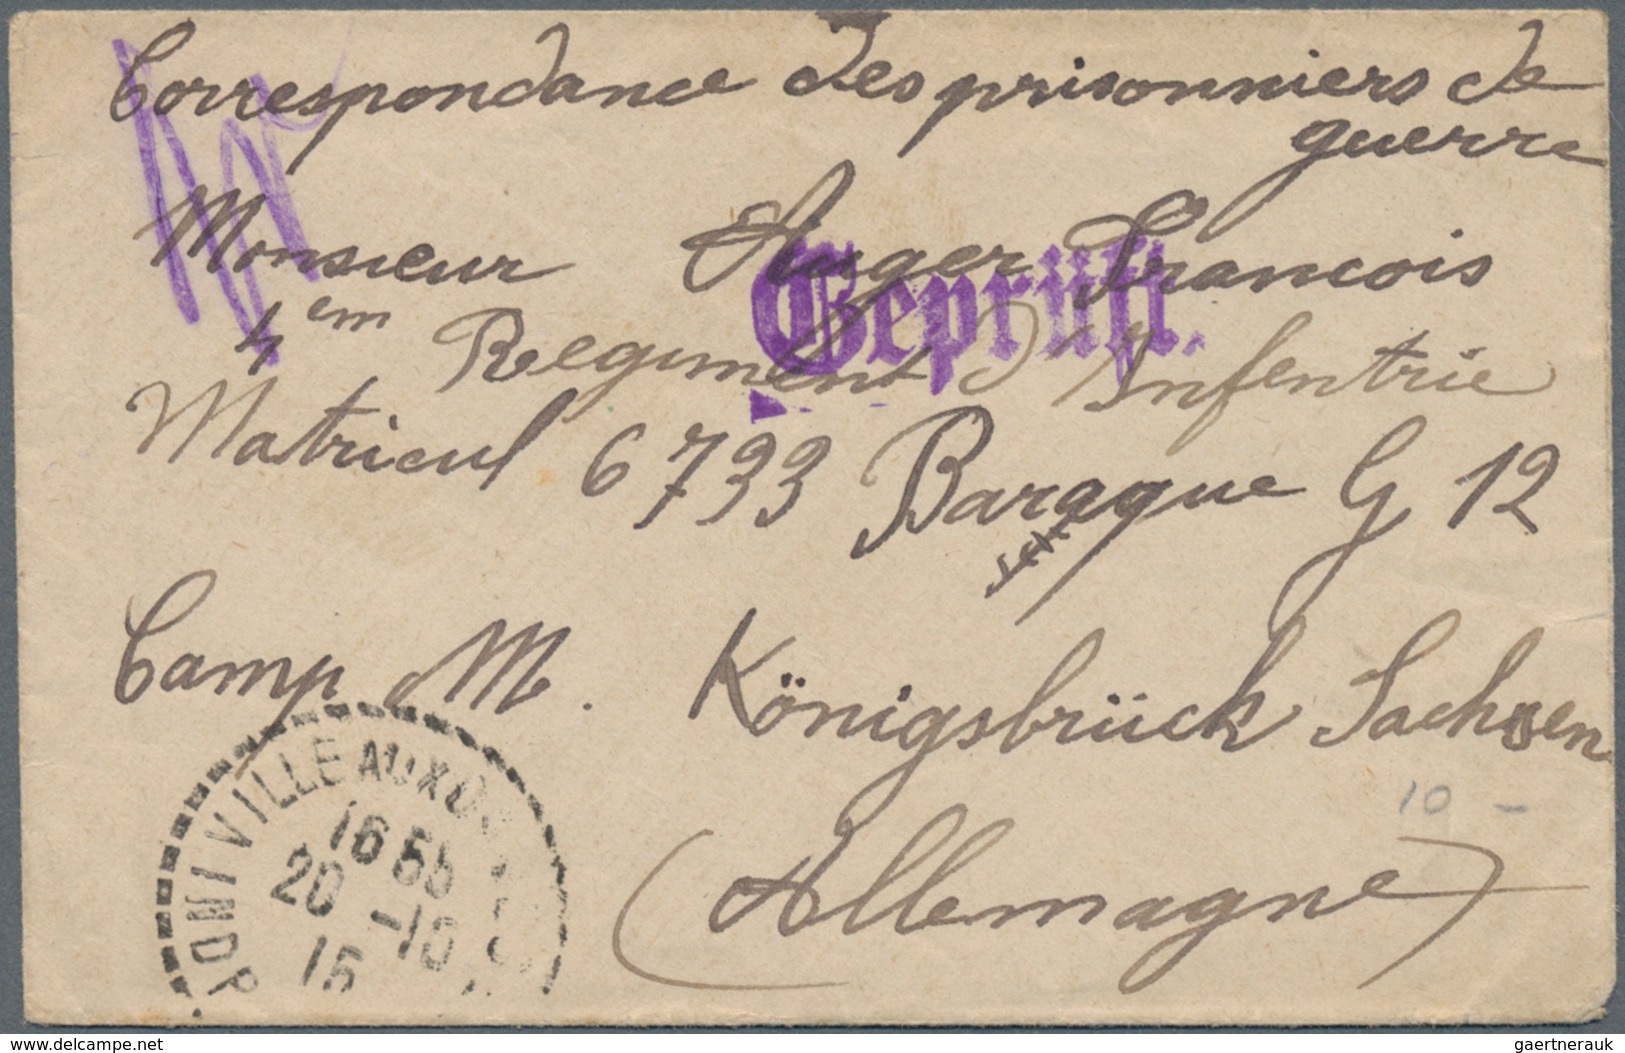 Correspondance des prisonniers de
guerre
Monsieur Auger Francois
Geprüft.
4em Regiment d'Infentrie
Matricul 6733 Baraque G 12
Camp M. Königsbrück Sachsen
10 -
(Allemagne)
DOMVILLE AUX
16 55
20 -10
15
www.delcampe.net
gaertnerauk